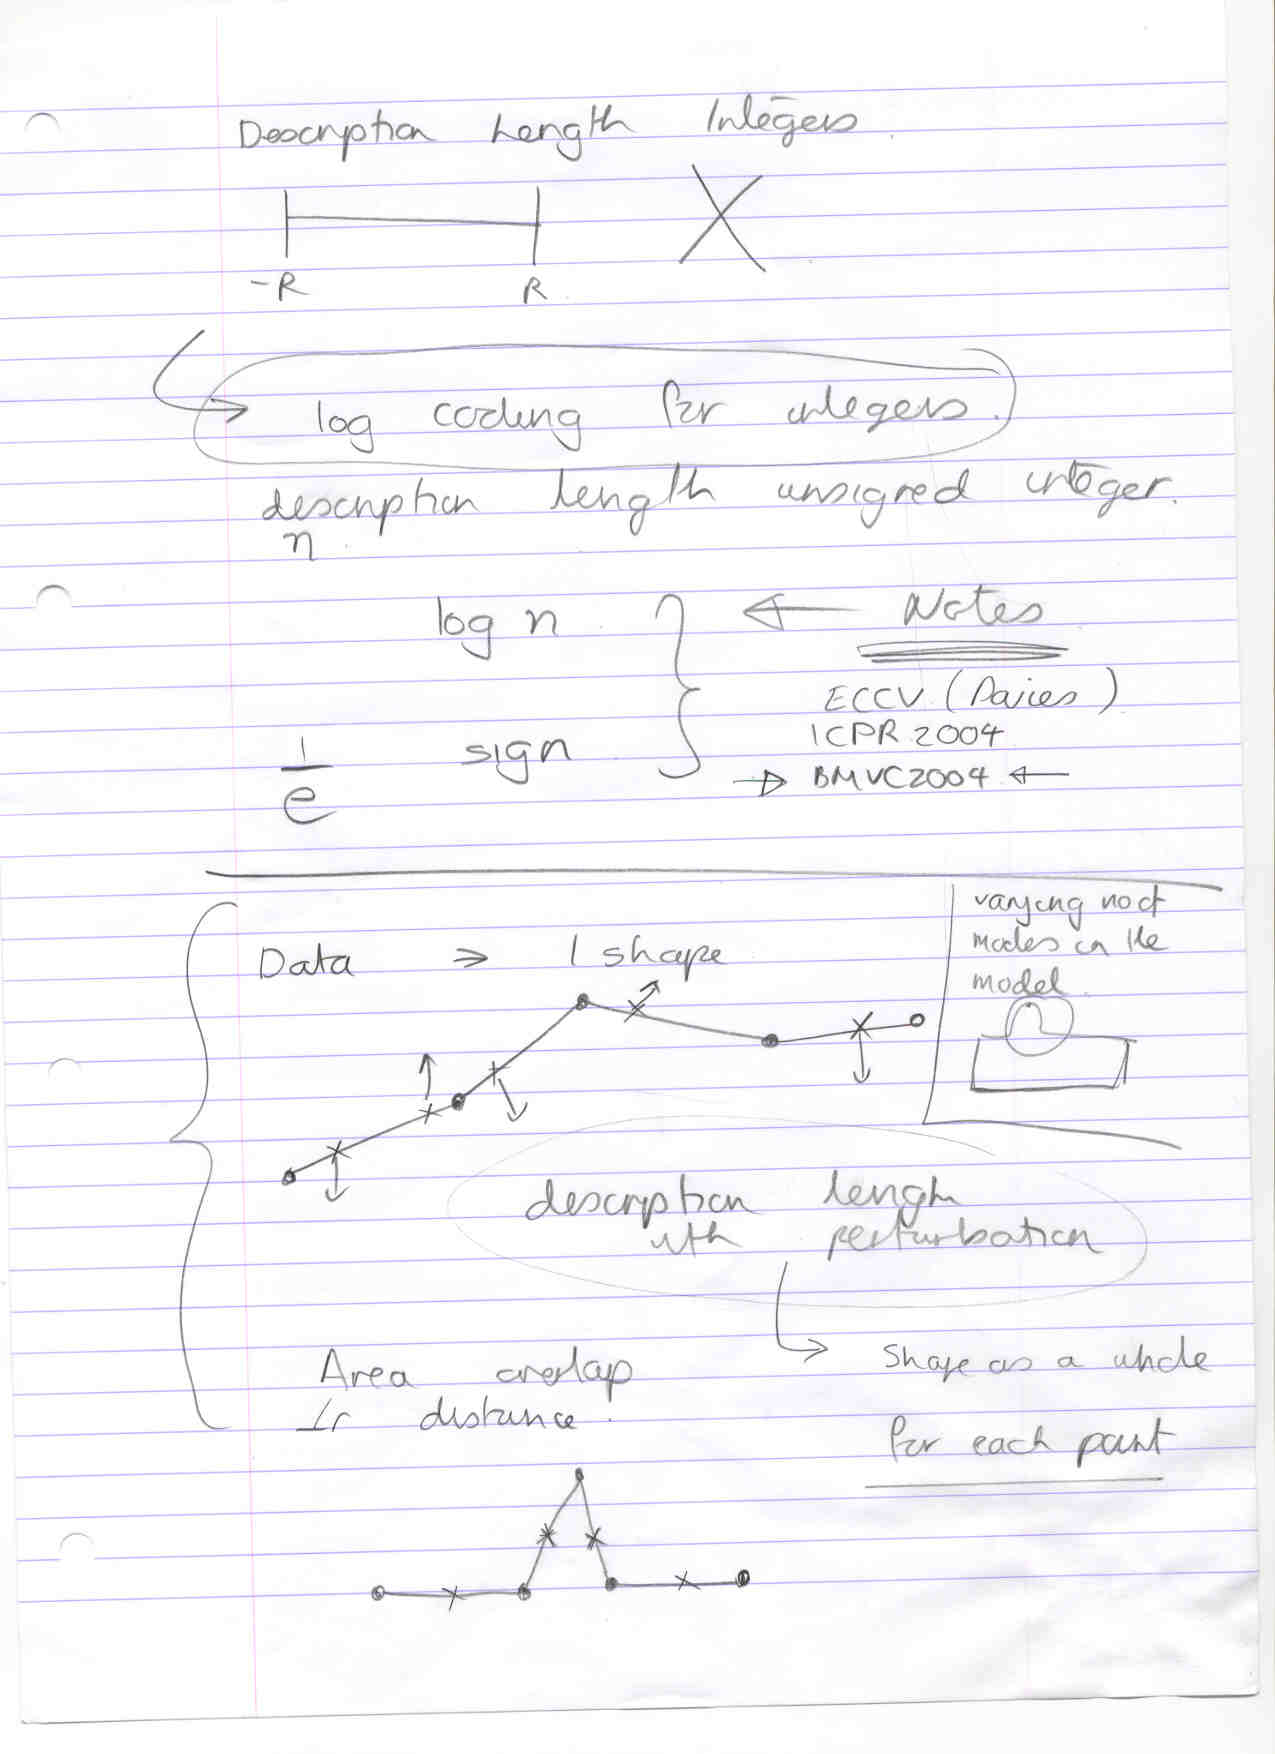 Description Length Integers.
-R R
log coding for integers.
description length unsigned integer.
n
log n
Notes
ECCV (Davies)
ICPR 2004
1
e
sign
BMVC2004
varying no of
modes in the
model
Data ⇒ 1 shape
description length
with perturbation
Shape as a whole
Area overlap
distance.
for each point